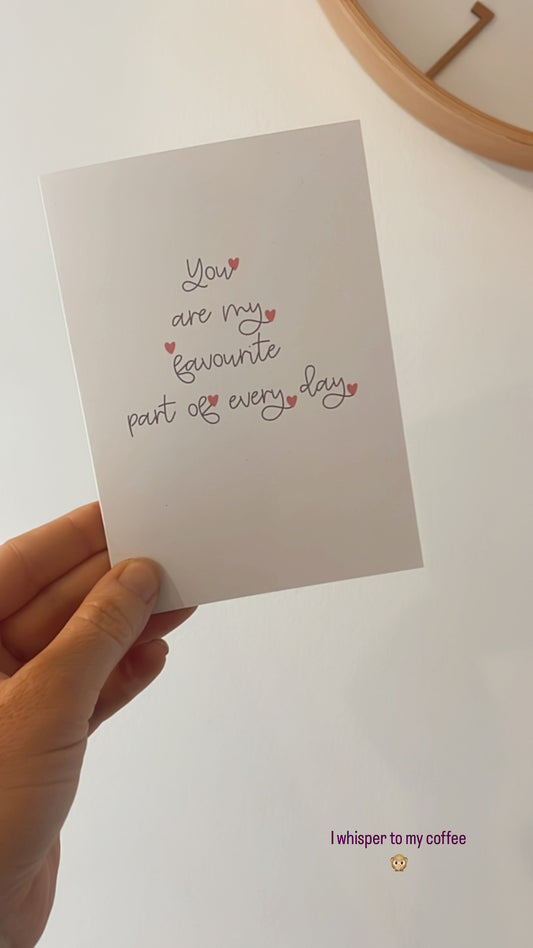 You
are my
favourite
part of every day
I whisper to my coffee